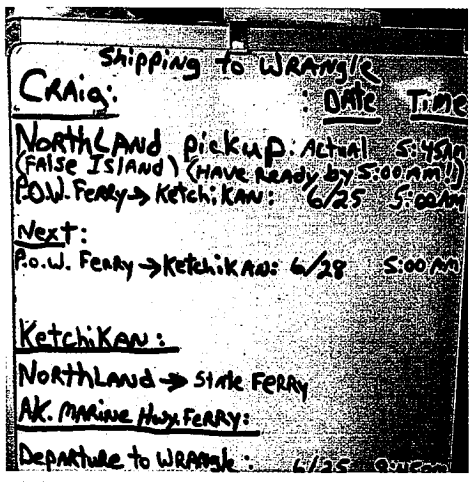 Shipping to WRANgle
CRAig:
: DAte Time
NORthLANd pickup: ACtuAl 5:45AM
(FAlse ISlANd) (HAVE ReAdy by 5:00 AM!)
P.O.W. Ferry → KetchiKAN: 6/25 5:00AM
Next:
P.O.W. FeRRy → KetchiKAN: 6/28 5:00 AM
KetchiKAN:
NORthLANd → StAte FeRRy
AK. MARINE Hwy. FERRY:
DepARtuRe to WRANgle: 6/25 9:45AM